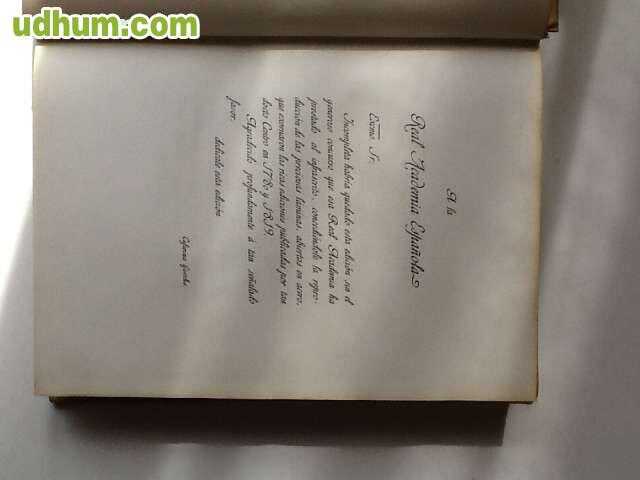 udhum.com
A la
Real Academia Española
Excmo. Sr.
Incompleta habría quedado esta edición sin el
generoso concurso que esa Real Academia ha
prestado al infrascrito, concediéndole la repro-
ducción de las preciosas láminas, abiertas en acero,
que exornaron las ricas ediciones publicadas por tan
docto Centro en 1780 y 1819.
Agradecido profundamente á tan señalado
favor,
dedícale esta edición